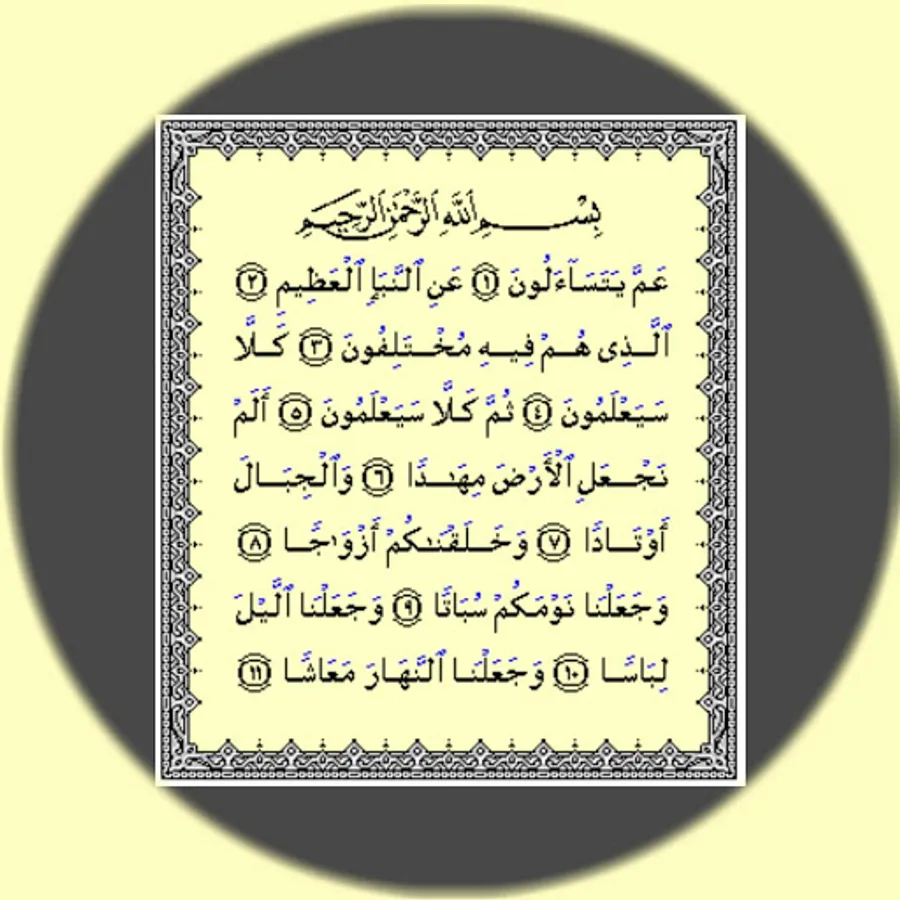 بِسْمِ اللَّهِ الرَّحْمَٰنِ الرَّحِيمِ
عَمَّ يَتَسَآءَلُونَ ١ عَنِ ٱلنَّبَإِ ٱلْعَظِيمِ ٢
ٱلَّذِى هُمْ فِيهِ مُخْتَلِفُونَ ٣ كَلَّا
سَيَعْلَمُونَ ٤ ثُمَّ كَلَّا سَيَعْلَمُونَ ٥ أَلَمْ
نَجْعَلِ ٱلْأَرْضَ مِهَٰدًا ٦ وَٱلْجِبَالَ
أَوْتَادًا ٧ وَخَلَقْنَٰكُمْ أَزْوَٰجًا ٨
وَجَعَلْنَا نَوْمَكُمْ سُبَاتًا ٩ وَجَعَلْنَا ٱلَّيْلَ
لِبَاسًا ١٠ وَجَعَلْنَا ٱلنَّهَارَ مَعَاشًا ١١